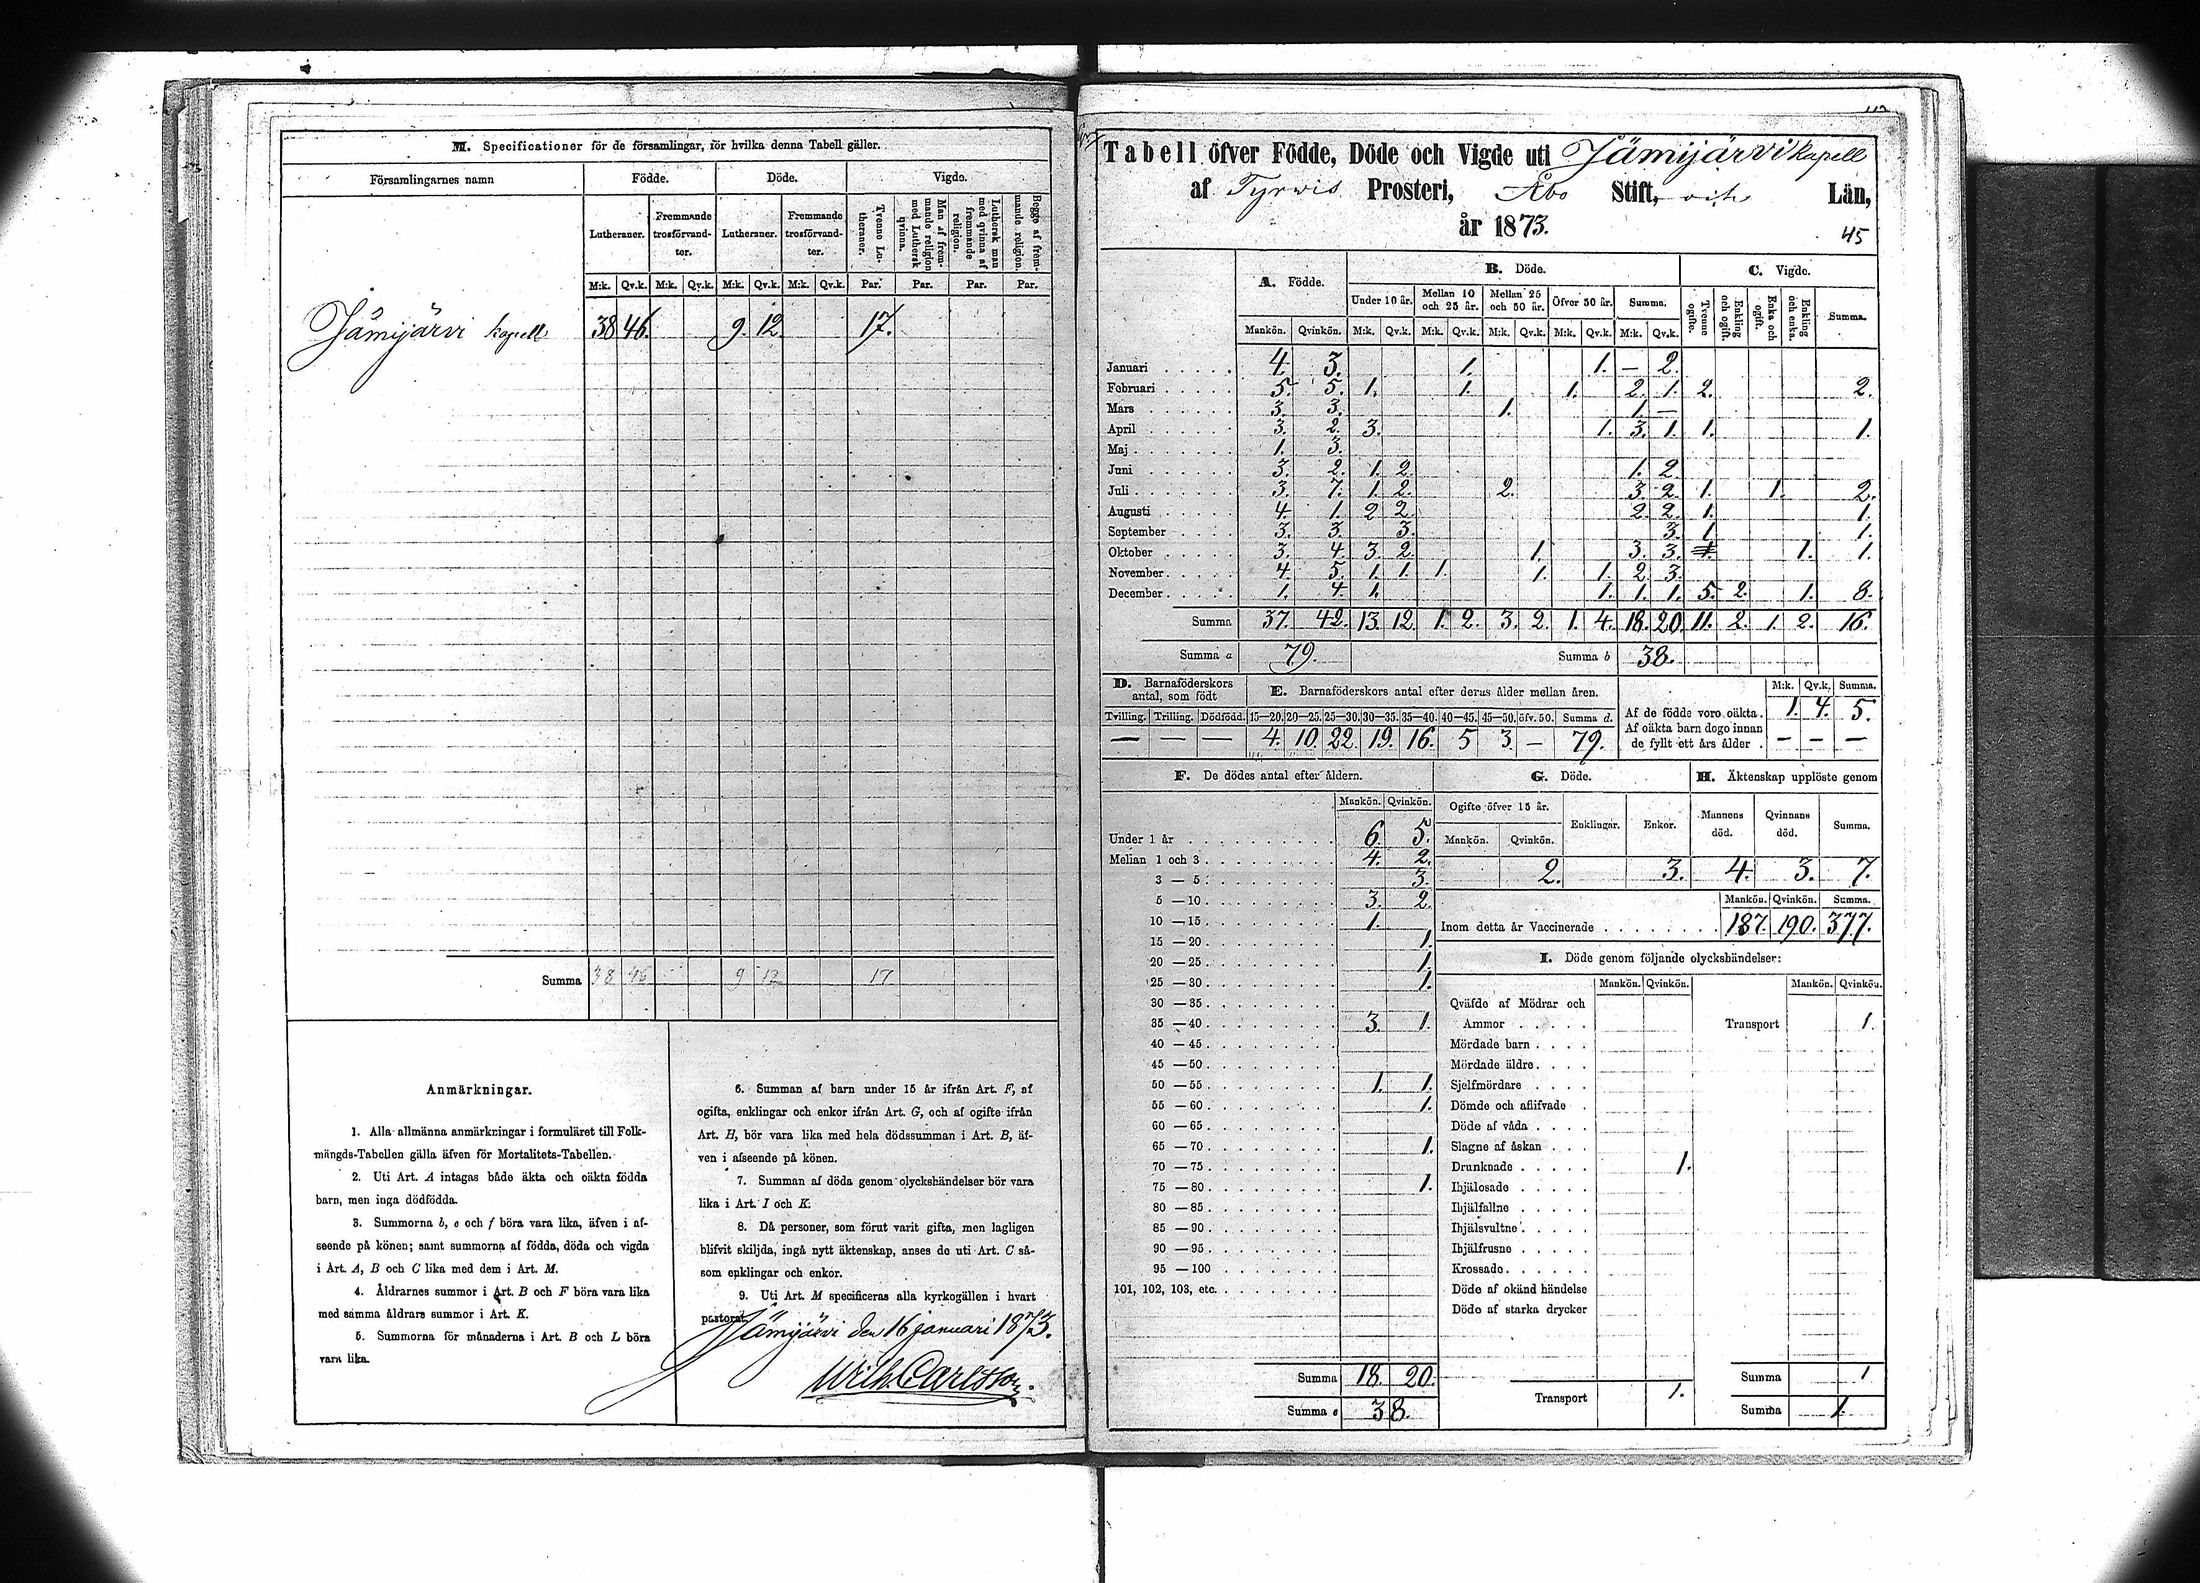 M. Specificationer för de församlingar, för hvilka denna Tabell gäller.
Församlingarnes namn
Födde. Döde. Vigde.
Lutheraner. Fremmande trosförvandter. Lutheraner. Fremmande trosförvandter. Tvenne Lutheraner. Man af fremmande religion med Luthersk qvinna. Luthersk man med qvinna af fremmande religion. Begge af fremmande religion.
M:k. Qv.k. M:k. Qv.k. M:k. Qv.k. M:k. Qv.k. Par. Par. Par. Par.
Jämijärvi kapell 38 46. 9. 12. 17.
Summa 38 46 9 12 17
Anmärkningar.
1. Alla allmänna anmärkningar i formuläret till Folk-
mängds-Tabellen gälla äfven för Mortalitets-Tabellen.
2. Uti Art. A intagas både äkta och oäkta födda
barn, men inga dödfödda.
3. Summorna b, e och f böra vara lika, äfven i af-
seende på könen; samt summorna af födda, döda och vigda
i Art. A, B och C lika med dem i Art. M.
4. Åldrarnes summor i Art. B och F böra vara lika
med samma åldrars summor i Art. K.
5. Summorna för månaderna i Art. B och L böra
vara lika.
6. Summan af barn under 15 år ifrån Art. F, af
ogifta, enklingar och enkor ifrån Art. G, och af ogifte ifrån
Art. H, bör vara lika med hela dödssumman i Art. B, äf-
ven i afseende på könen.
7. Summan af döda genom olyckshändelser bör vara
lika i Art. I och K.
8. Då personer, som förut varit gifta, men lagligen
blifvit skiljda, ingå nytt äktenskap, anses de uti Art. C så-
som enklingar och enkor.
9. Uti Art. M specificeras alla kyrkogällen i hvart
pastorat.
Jämijärvi den 16 januari 1873.
Wilh. Carlsson.
Tabell öfver Födde, Döde och Vigde uti Jämijärvi kapell
af Tyrvis Prosteri, Åbo Stift, och Län,
år 1873.
45
A. Födde. B. Döde. C. Vigde.
Under 10 år. Mellan 10 och 25 år. Mellan 25 och 50 år. Öfver 50 år. Summa. Tvenne ogifte. Enkling och ogift. Enka och ogift. Enkling och enka. Summa.
Mankön. Qvinkön. M:k. Qv.k. M:k. Qv.k. M:k. Qv.k. M:k. Qv.k. M:k. Qv.k.
Januari 4. 3. 1. 1. — 2.
Februari 5. 5. 1. 1. 1. 2. 1. 2. 2.
Mars 3. 3. 1. 1. —
April 3. 2. 3. 1. 3. 1. 1. 1.
Maj 1. 3.
Juni 3. 2. 1. 2. 1. 2.
Juli 3. 7. 1. 2. 2. 3. 2. 1. 1. 2.
Augusti 4. 1. 2 2. 2. 2. 1. 1.
September 3. 3. 3. 3. 1 1.
Oktober 3. 4. 3. 2. 1. 3. 3. 1. 1.
November 4. 5. 1. 1. 1. 1. 1. 2. 3.
December 1. 4. 1. 1. 1. 1. 5. 2. 1. 8.
Summa 37. 42. 13. 12. 1. 2. 3. 2. 1. 4. 18. 20. 11. 2. 1. 2. 16.
Summa a 79. Summa b 38.
D. Barnaföderskors antal, som födt
E. Barnaföderskors antal efter deras ålder mellan åren.
M:k. Qv.k. Summa.
Tvilling. Trilling. Dödfödd. 15—20. 20—25. 25—30. 30—35. 35—40. 40—45. 45—50. öfv. 50. Summa d.
— — — 4. 10. 22. 19. 16. 5 3. — 79.
Af de födde voro oäkta. 1. 4. 5.
Af oäkta barn dogo innan
de fyllt ett års ålder. — — —
F. De dödes antal efter åldern.
Mankön. Qvinkön.
Under 1 år 6. 5.
Mellan 1 och 3 4. 2.
3 — 5 3.
5 — 10 3. 2.
10 — 15 1.
15 — 20 1.
20 — 25 1.
25 — 30 1.
30 — 35
35 — 40 3. 1.
40 — 45
45 — 50
50 — 55 1. 1.
55 — 60 1.
60 — 65
65 — 70 1.
70 — 75
75 — 80 1.
80 — 85
85 — 90
90 — 95
95 — 100
101, 102, 103, etc.
Summa 18. 20.
Summa e 38.
G. Döde.
Ogifte öfver 15 år. Enklingar. Enkor.
Mankön. Qvinkön.
2. 3.
H. Äktenskap upplöste genom
Mannens död. Qvinnans död. Summa.
4. 3. 7.
Mankön. Qvinkön. Summa.
Inom detta år Vaccinerade 187. 190. 377.
I. Döde genom följande olyckshändelser:
Mankön. Qvinkön. Mankön. Qvinkön.
Qväfde af Mödrar och
Ammor
Mördade barn
Mördade äldre
Sjelfmördare
Dömde och aflifvade
Döde af våda
Slagne af åskan
Drunknade 1.
Ihjälosade
Ihjälfallne
Ihjälsvultne
Ihjälfrusne
Krossade
Döde af okänd händelse
Döde af starka drycker
Transport 1.
Transport 1.
Summa 1
Summa 1.